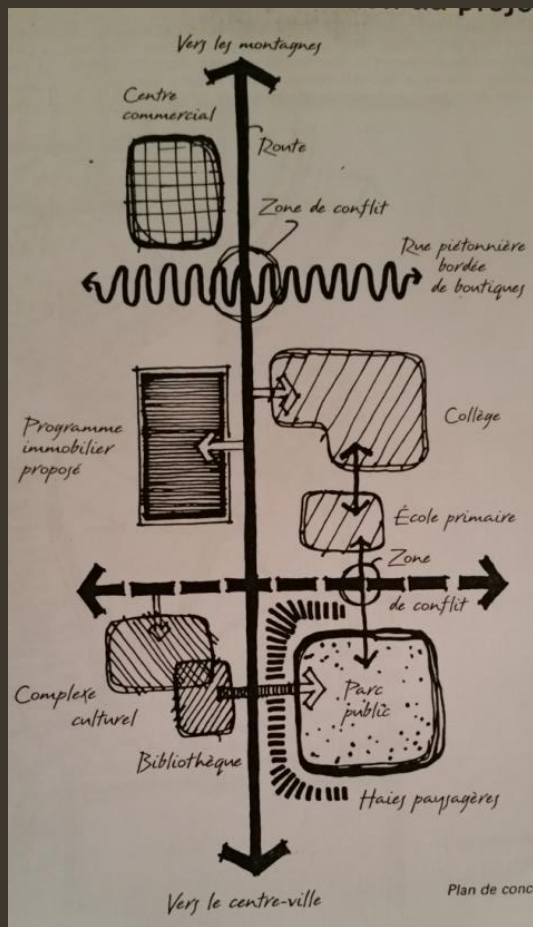 du projet
Vers les montagnes
Centre
commercial
Route
Zone de conflit
Rue piétonnière
bordée
de boutiques
Programme
immobilier
proposé
Collège
École primaire
Zone
de conflit
Complexe
culturel
Parc
public
Bibliothèque
Haies paysagères
Vers le centre-ville
Plan de conc